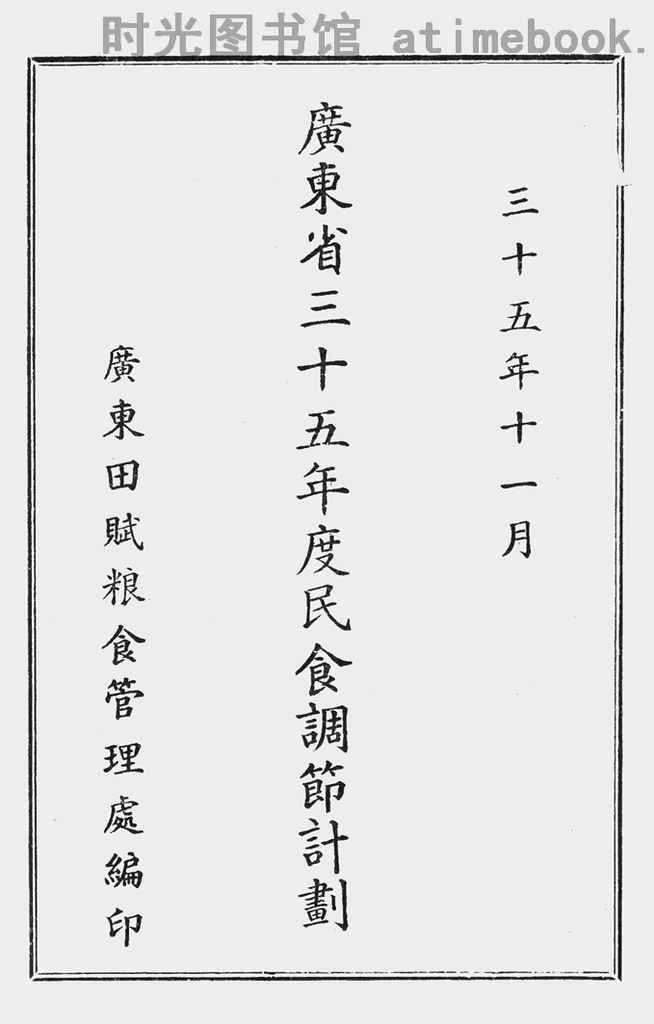 时光图书馆 atimebook.
三十五年十一月
廣東省三十五年度民食調節計劃
廣東田賦粮食管理處編印